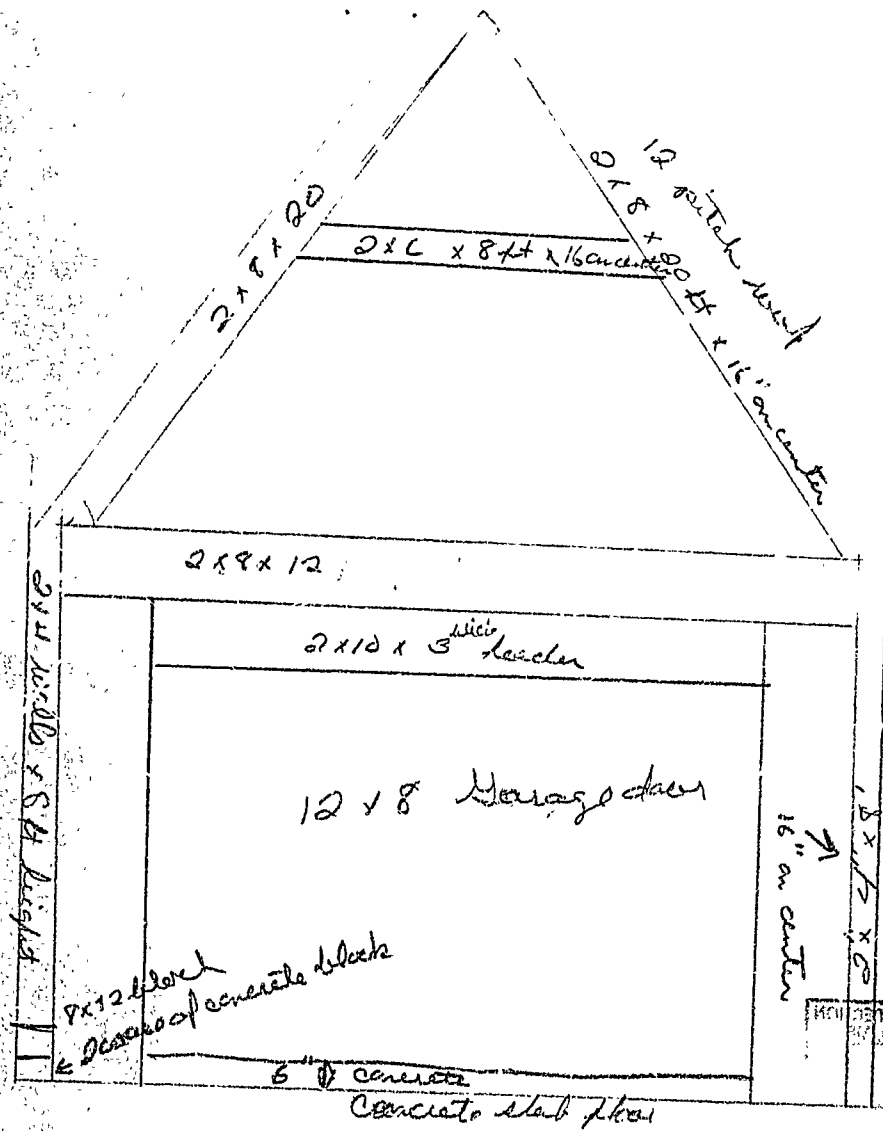 12 pitch
2 x 8 x 20 ft x 16" on center
2 x 8 x 20
2 x 6 x 8 ft x 16 on center
2 x 8 x 12
2 x 10 x 3 header
2 x 4 walls x 8 ft height
12 x 8 Garage door
16" on center
2" x 4" x 8'
8x12 block
2 courses of concrete block
6" concrete
Concrete slab floor